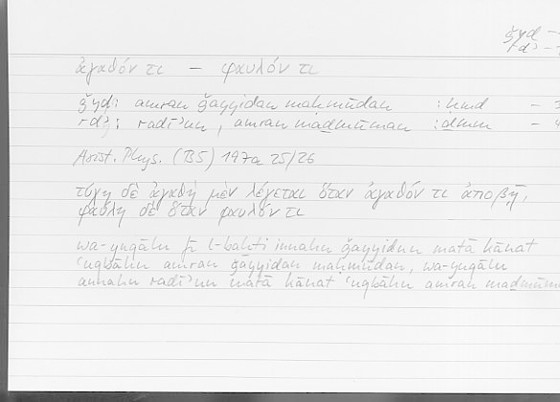 ǧyd –
rdʾ –
ἀγαθόν τι – φαυλόν τι
ǧyd: amran ǧayyidan maḥmūdan :ḥmd –
rdʾ: radīʾun, amran maḏmūman :ḏmm –
Arist. Phys. (BS) 197a 25/26
τύχη δὲ ἀγαθὴ μὲν λέγεται ὅταν ἀγαθόν τι ἀποβῇ,
φαύλη δὲ ὅταν φαυλόν τι
wa-yuqālu fī l-baḫti innahu ǧayyidun matā kānat
ʿuqbāhu amran ǧayyidan maḥmūdan, wa-yuqālu
annahu radīʾun matā kānat ʿuqbāhu amran maḏmūm